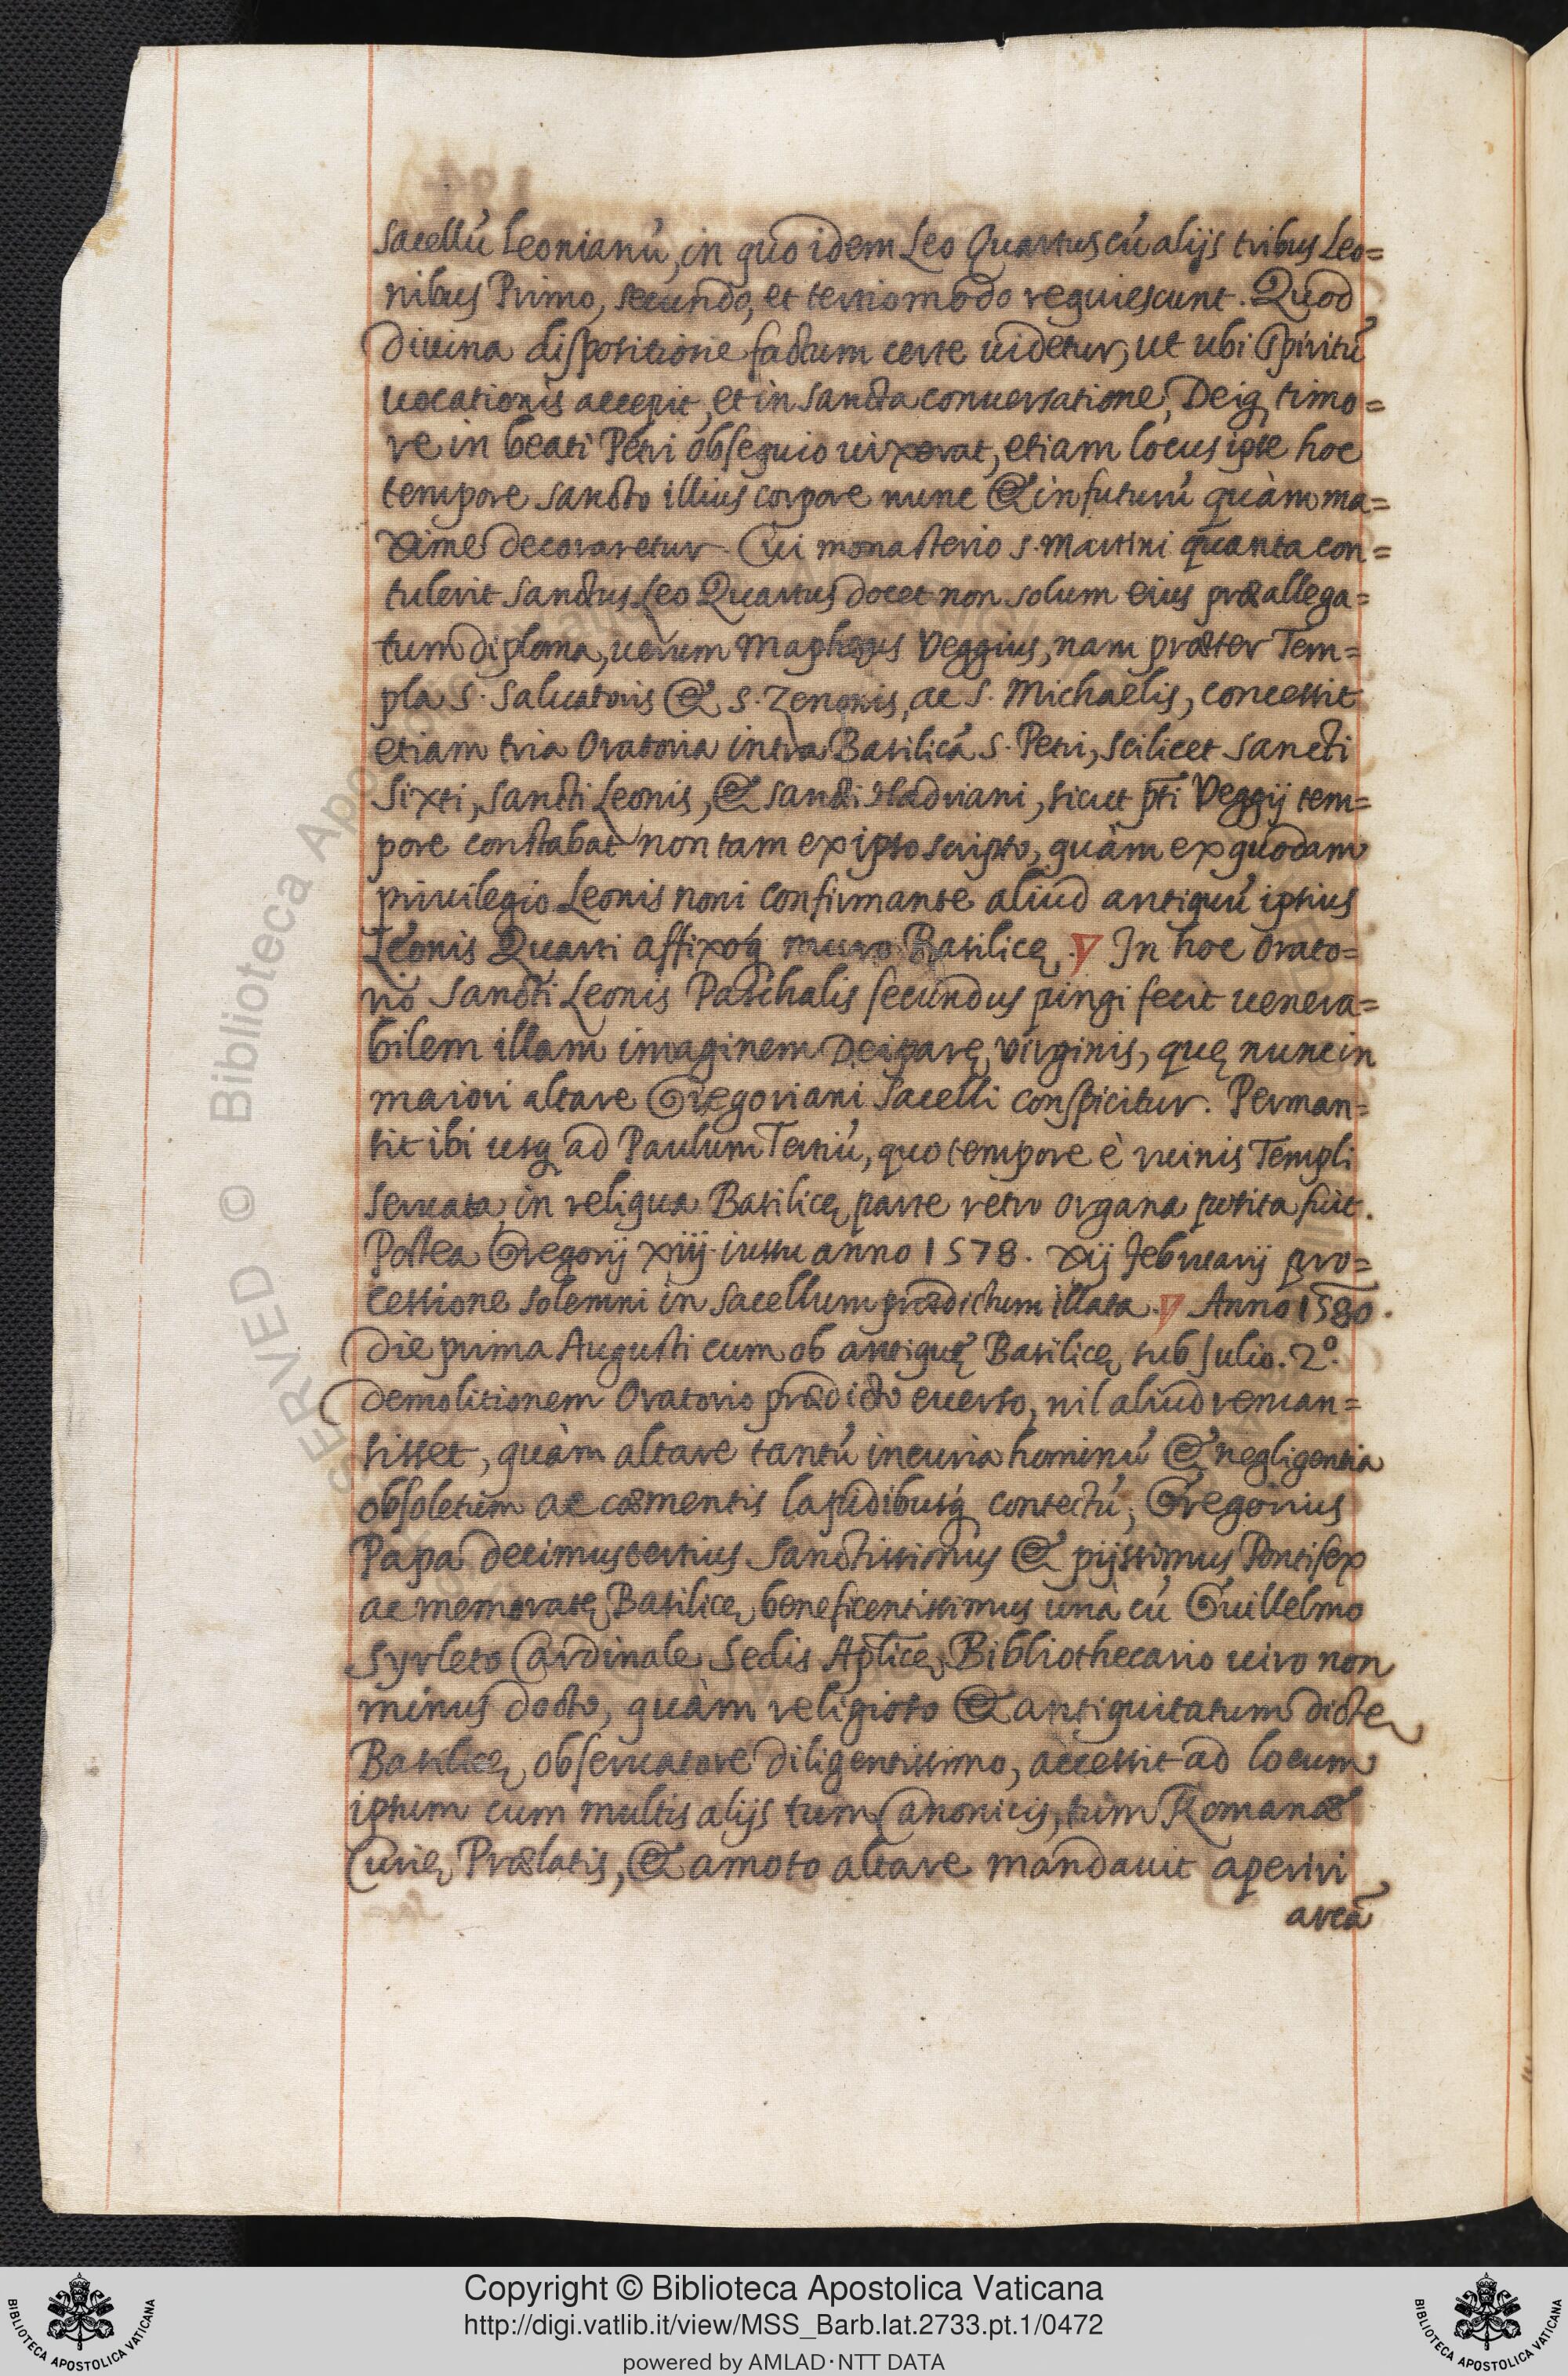 sacellũ Leonianũ, in quo idem Leo Quartus cũ alijs tribus Leo=
nibus Primo, secundo, et tertio modo requiescunt. Quod
diuina dispositione factum certe uidetur, ut ubi spiritũ
uocationis accepit, et in sancta conuersatione, Deiq; timo=
re in beati Petri obsequio uixerat, etiam locus ipse hoc
tempore sancto illius corpore nunc & in futurũ quàm ma=
xime decoraretur. Cui monasterio s. Martini quanta con=
tulerit Sanctus Leo Quartus docet non solum eius præallega=
tum diploma, uerum Mapheus Veggius, nam præter Tem=
pla S. Saluatoris & S. Zenonis, ac S. Michaelis, concessit
etiam tria Oratoria intra Basilicã S. Petri, scilicet Sancti
Sixti, Sancti Leonis, & Sancti Hadriani, sicut p̃ti Veggij tem=
pore constabat non tam ex ipso scripto, quàm ex quodam
priuilegio Leonis noni confirmante aliud antiquũ ipsius
Leonis Quarti affixoq; muro Basilicę. ∇ In hoc Orato=
rio Sancti Leonis Paschalis secundus pingi fecit uenera=
bilem illam imaginem Deiparę Virginis, quę nunc in
maiori altare Gregoriani Sacelli conspicitur. Perman=
sit ibi usq; ad Paulum Tertiũ, quo tempore è ruinis Templi
seruata in reliqua Basilicę parte retro organa posita fuit.
Postea Gregorij xiij. iussu anno 1578. xij februarij pro=
cessione solemni in Sacellum prædictum illata. ∇ Anno 1580.
die prima Augusti cum ob antiquę Basilicę sub Julio. 2º.
demolitionem Oratorio prædicto euerso, nil aliud reman=
sisset, quàm altare tantũ incuria hominũ & negligentia
obsoletum ac cæmentis lapidibusq; contectũ, Gregorius
Papa decimustertius Sanctissimus & pijssimus Pontifex
ac memoratę Basilicę beneficentissimus una cũ Guillelmo
Syrleto Cardinale Sedis Apl̃icę Bibliothecario uiro non
minus docto, quàm religioso & antiquitatum dictę
Basilicę obseruatore diligentissimo, accessit ad locum
ipsum cum multis alijs tum Canonicis, tum Romanæ
Curię Prælatis, & amoto altare mandauit aperiri
arcã
Copyright © Biblioteca Apostolica Vaticana
http://digi.vatlib.it/view/MSS_Barb.lat.2733.pt.1/0472
powered by AMLAD·NTT DATA
BIBLIOTECA APOSTOLICA VATICANA
BIBLIOTECA APOSTOLICA VATICANA